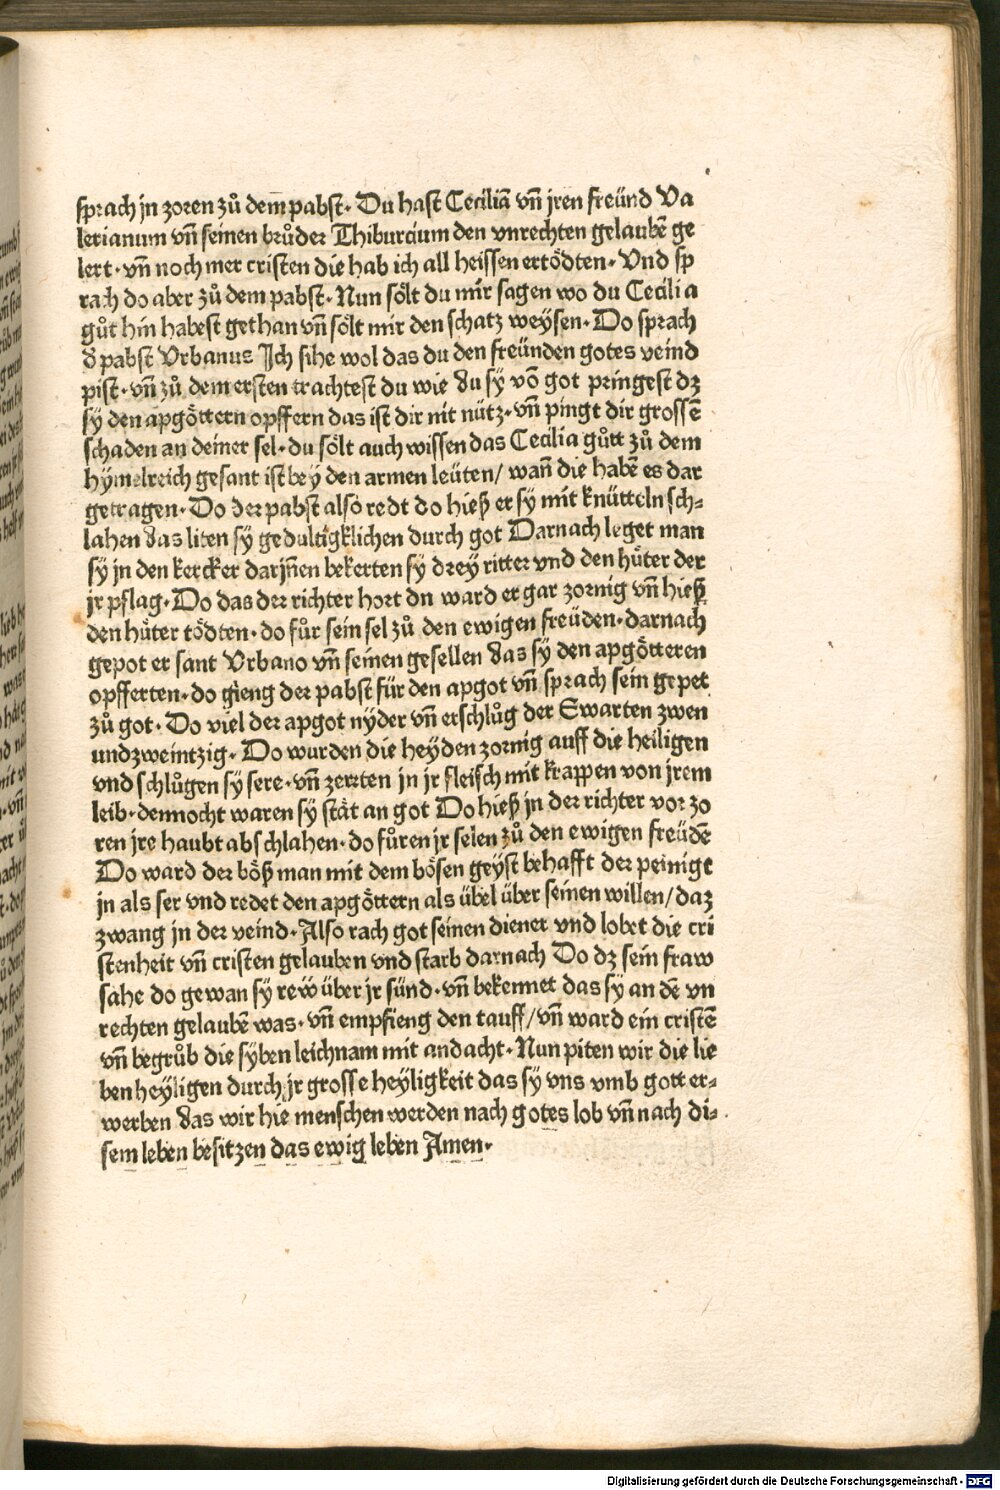 sprach jn zoren zů dem pabst· Du hast Ceciliā vn̄ jren freünd Va
lerianum vn̄ seinen brůder Thiburcium den vnrechten gelaubē ge
lert· vn̄ noch mer cristen die hab ich all heissen ertödten· Vnd sp
rach do aber zů dem pabst· Nun sölt du mir sagen wo du Cecilia
gůt hin habest gethan vn̄ sölt mir den schatz weysen· Do sprach
d̄ pabst Vrbanus Jch sihe wol das du den freünden gotes veind
pist· vn̄ zů dem ersten trachtest du wie du sy vō got pringest dz
sy den apgöttern opffern das ist dir nit nütz· vn̄ pingt dir grossē
schaden an deiner sel· du sölt auch wissen das Cecilia gůtt zů dem
hymelreich gesant ist bey den armen leüten/ wan̄ die habē es dar
getragen· Do der pabst also redt do hieß er sy mit knütteln sch-
lahen das liten sy gedultigklichen durch got Darnach leget man
sy jn den kercker darjn̄en bekerten sy drey ritter vnd den hüter der
jr pflag· Do das der richter hort dn ward er gar zornig vn̄ hieß
den hüter tödten· do fůr sein sel zů den ewigen freüden· darnach
gepot er sant Vrbano vn̄ seinen gesellen das sy den apgötteren
opfferten· do gieng der pabst für den apgot vn̄ sprach sein gepet
zů got· Do viel der apgot nyder vn̄ erschlůg der Ewarten zwen
undzweintzig· Do wurden die heyden zornig auff die heiligen
vnd schlůgen sy sere· vn̄ zerrten jn jr fleisch mit krappen von jrem
leib· dennocht waren sy stät an got Do hieß jn der richter vor zo
ren jre haubt abschlahen· do fůren jr selen zů den ewigen freüdē
Do ward der böß man mit dem bösen geyst behafft der peinigt
jn als ser vnd redet den apgöttern als übel über seinen willen/ daz
zwang jn der veind· Also rach got seinen diener vnd lobet die cri
stenheit vn̄ cristen gelauben vnd starb darnach Do dz sein fraw
sahe do gewan sy rew über jr sünd· vn̄ bekennet das sy an dē vn
rechten gelaubē was· vn̄ empfieng den tauff/ vn̄ ward ein cristē
vn̄ begrůb die syben leichnam mit andacht· Nun piten wir die lie
ben heyligen durch jr grosse heyligkeit das sy vns vmb gott er-
werben das wir hie menschen werden nach gotes lob vn̄ nach di-
sem leben besitzen das ewig leben Amen·
Digitalisierung gefördert durch die Deutsche Forschungsgemeinschaft - DFG